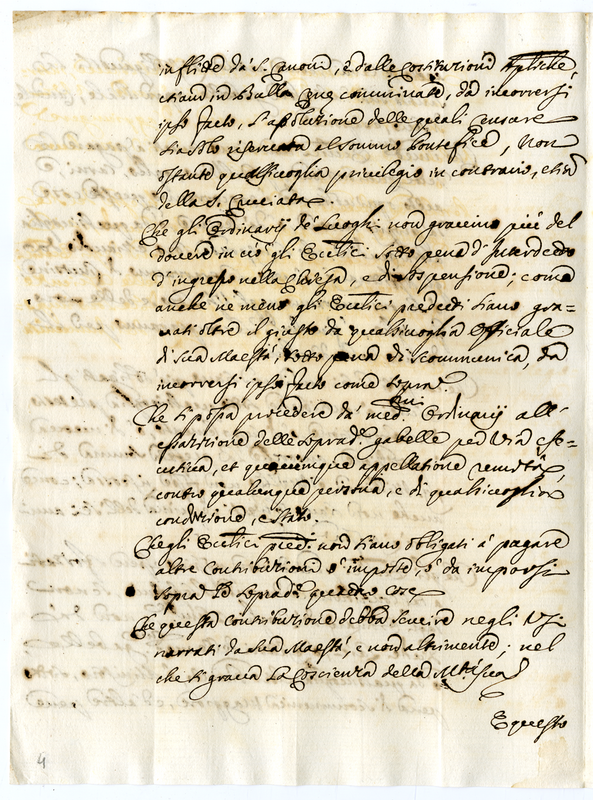 inflitte da' S. Canoni, e dalle Costituzioni Apliche
etiand in Bulla Cenę comminate, da incorrersi
ipso facto, l'assoluzione delle quali Censure
sia solo riservata al Sommo Pontefice, Non
ostante qualsivoglia privilegio in contrario, etiā
della S. Cruciata.
Che gli Ordinarij de' Luoghi non gravino più del
dovere in ciò gli Ecclici sotto pena d'Interdetto
d'ingresso nella Chiesa, e di sospensione; come
anche nè meno gli Ecclici predetti siano gra=
vati oltre il giusto da qualsivoglia Officiale
di Sua Maestà, sotto pena di scommunica, da
incorrersi ipso facto come sopra.
Che si possa procedere da' med.mi Ordinarij all'
essazzione delle soprad.e gabelle per via esse=
cutiva, et quacumque appellatione remota,
contro qualunque persona, e di qualsivoglia
condizione, e stato.
Che gli Ecclici pred.i non siano obligati à pagare
altre Contribuzioni ò imposte, ò da imporsi
sopra le soprad.e cose
Che questa Contribuzione debba servire negli Usi
narrati da Sua Maestà, e non altrimente; nel
che si grava la Coscienza della Mtà Sua
E questo
4